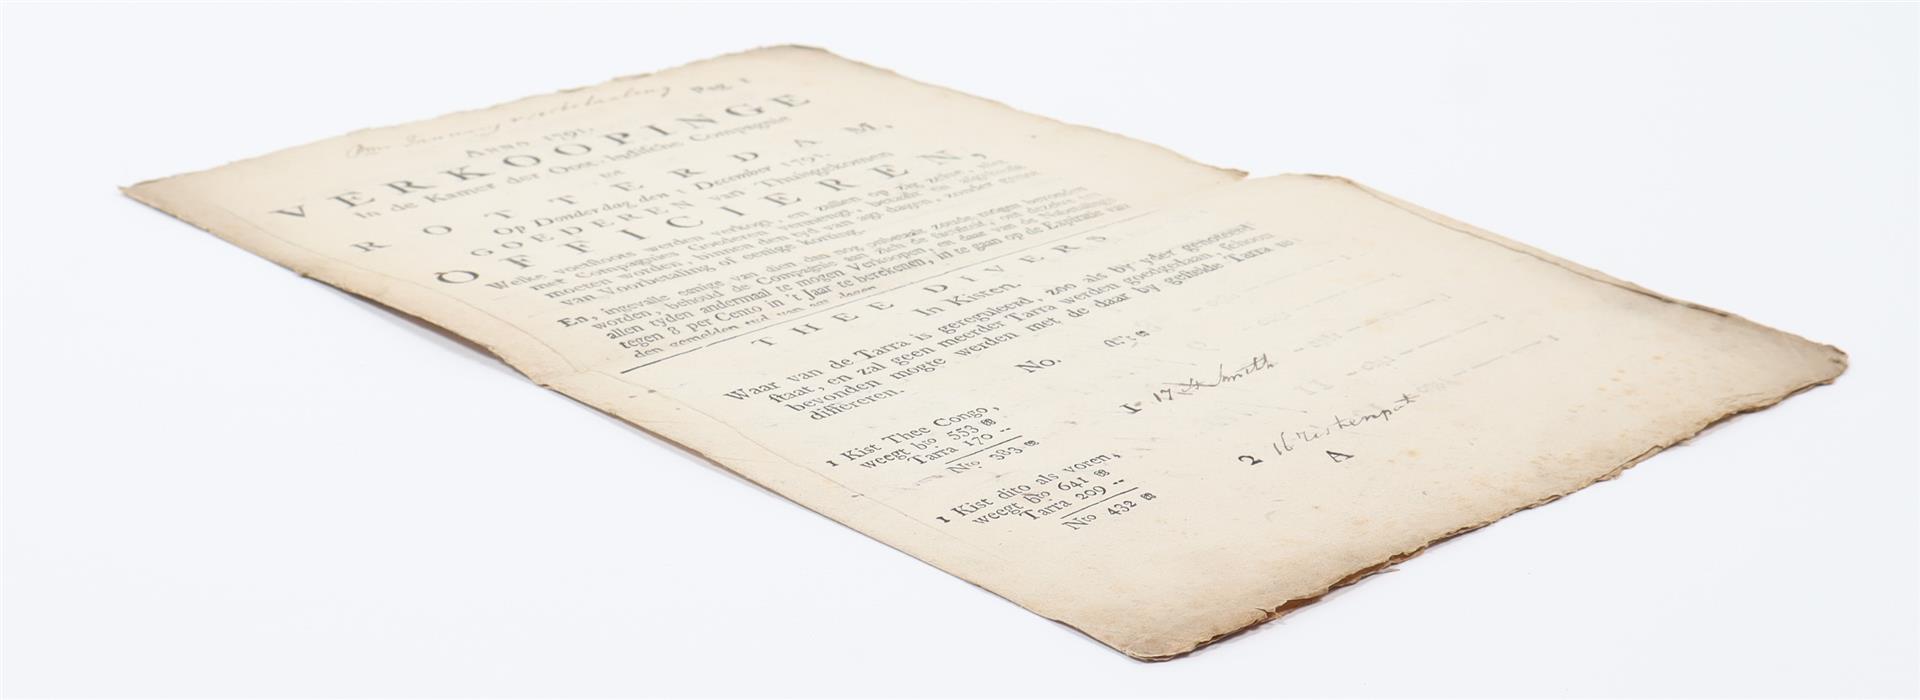 Pag. 1
ANNO 1791.
VERKOOPINGE
In de Kamer der Oost-Indische Compagnie
tot
ROTTERDAM,
Op Donderdag den 1 December 1791.
GOEDEREN van Thuisgekomen
OFFICIEREN,
Welke voetstoots werden verkogt, en zullen op zig zelve, niet
met Compagnies Goederen vermengt, betaelt en afgehaeld
moeten worden, binnen den tyd van agt dagen, zonder genot
van Voorbetaling of eenige korting.
En, ingevalle eenige van dien dan nog onbetaelt zoude mogen bevonden
worden, behoud de Compagnie aan zich de faculteit, om dezelve ten
allen tyden andermael te mogen Verkoopen, en daar van de Nabetaling
tegen 8 per Cento in 't Jaar te berekenen, in te gaan op de Expiratie van
den gemelden tyd van agt dagen
THEE DIVERS
In Kisten.
Waar van de Tarra is gereguleerd, zoo als by yder genoteert
staat, en zal geen meerder Tarra werden goedgedaan, schoon
bevonden mogte werden met de daar by gestelde Tarra te
differeren.
No.
1 Kist Thee Congo,
weegt bto 553 ℔
Tarra 170 --
Nto 383 ℔
1 17 Smith
1 Kist dito als voren,
weegt bto 641 ℔
Tarra 209 --
Nto 432 ℔
2 16
A